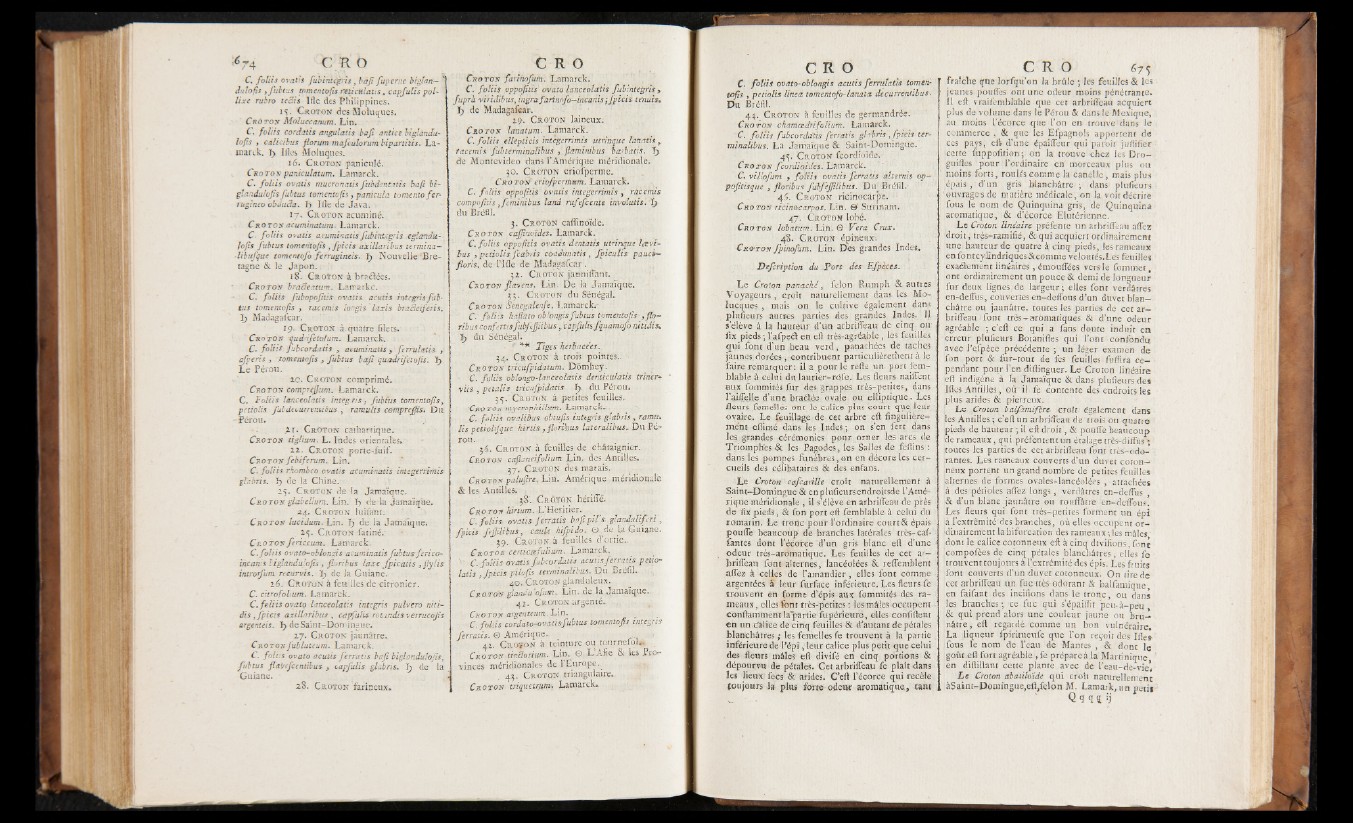 674 CRO
C. foliis ovatis subintegris, basi superne biglan-
dulosis, subtus tomentosis reticulatis, capsulis pol-
line rubro tectis Isle des Philippines.
15. CROTON des Moluques.
CROTON Moluccanum. Lin.
C. foliis cordatis angulatis basi antice biglandu-
losis, calicibus florum masculorum bipartitis. La-
marck. ♄ Isles Moluques.
16. CROTON paniculé.
CROTON paniculatum. Lamarck.
C. foliis ovatis mucronatis subdentatis basi bi-
glandulosis subtus tomentosis, panicula tomento fer-
rugineo obducta. ♄ Isle de Java.
17. CROTON acuminé.
CROTON acuminatum. Lamarck.
C. foliis ovatis acuminatis subintegris eglandu-
losis subtus tomentosis, spicis axillaribus termina-
libusque tomentoso ferrugineis. ♄ Nouvelle Bre-
tagne & le Japon.
18. CROTON à bractées.
CROTON bracteatum. Lamarkc.
C. foliis suboppositis ovatis acutis integris sub-
tus tomentosis, racemis longis laxis bracteiferis.
♄ Madagascar.
19. CROTON à quatre filets.
CROTON quadrisetosum. Lamarck.
C. foliis subcordatis, acuminatis, serrulatis,
asperis, tomentosis, subtus basi quadrisetosis. ♄
Le Pérou.
20. CROTON comprimé.
CROTON compressum. Lamarck.
C. Foliis lanceolatis integris, subtus tomentosis,
petiolis subdecurrentibus, ramulis compressis. Du
Pérou.
21. CROTON cathartique.
CROTON tiglium. L. Indes orientales.
22. CROTON porte-suif.
CROTON sebiferum. Lin.
C. foliis rhombeo ovatis acuminatis integerrimis
glabris. ♄ de la Chine.
23. CROTON de la Jamaïque.
CROTON glabellum. Lin. ♄ de la Jamaïque.
24. CROTON luisant.
CROTON lucidum. Lin. ♄ de la Jamaïque.
25. CROTON satiné.
CROTON sericeum. Lamarck.
C. foliis ovato-oblongis acuminatis subtus serico-
incanis biglandulosis, floribus laxe spicatis, stylis
introrsum recurvis. ♄ de la Guiane.
26. CROTON à feuilles de citronier.
C. citrofolium. Lamarck.
C. foliis ovato lanceolatis integris pulvero niti-
dis, spicis axillaribus, capsulis rotundis verrucosis
argenteis. ♄ de Saint-Domingue.
27. CROTON jaunâtre.
CROTON subluteum. Lamarck.
C. foliis ovato acutis serratis basi biglandulosis,
subtus flavescentibus, capsulis glabris. ♄ de la
Guiane.
28. CROTON farineux.
CRO
CROTON farinosum. Lamarck.
C. foliis oppositis ovato lanceolatis subintegris,
suprà viridibus, infra farinoso-incanis; spicis tenuis.
♄ de Madagascar.
29. CROTON laineux.
CROTON lanatum. Lamarck.
C. foliis ellepticis integerrimis utrinque lanatis,
racemis subterminalibus, staminibus barbatis. ♄
de Montevideo dans l'Amérique méridionale.
30. CROTON eriosperme.
CROTON eriospermum. Lamarck.
C. foliis oppositis ovatis integerrimis, racemis
compositis, seminibus lanâ rufescente involutis. ♄
du Brésil.
3. CROTON cassinoïde.
CROTON cassinoides. Lamarck.
C. foliis oppositis ovatis dentatis utrinque lævi-
bus, petiolis scabris coadunatis, spiculis pauci-
floris, de l'Isle de Madagascar.
32. CROTON jaunissant.
CROTON flavens. Lin. De la Jamaïque.
33. CROTON du Sénégal.
CROTON Senegalense. Lamarck.
C. foliis hastato oblongis subtus tomentosis, flo-
ribus confertis subsessilibus, capsulis squamoso nitidis.
♄ du Sénégal.
** Tiges herbacées.
34. CROTON à trois pointes.
CROTON tricuspidatum. Dombey.
C. foliis oblongo-lanceolatis denticulatis triner-
viis, petalis tricuspidatis. ♄ du Pérou.
35. CROTON à petites feuilles.
CROTON microphillum. Lamarck.
C. foliis ovalibus obtusis integris glabris, ramu-
lis petiolisque hirtis, floribus lateralibus. Du Pé-
rou.
36. CROTON à feuilles de châtaignier.
CROTON castaneifolium Lin. des Antilles.
37. CROTON des marais.
CROTON palustre. Lin. Amérique méridionale
& les Antilles.
38. CROTON hérissé.
CROTON hirtum. L'Heritier.
C. foliis ovatis serratis basi pilis glanduliferi,
spicis sessilibus, caule hispido. ☉ de la Guiane.
39. CROTON à feuilles d'ortie.
CROTON urticæfolium. Lamarck.
C. foliis ovatis subcordatis acutis serratis petio-
latis, spicis pilosis terminalibus. Du Brésil.
40. CROTON glanduleux.
CROTON glandulosum. Lin. de la Jamaïque.
41. CROTON argenté.
CROTON argenteum. Lin.
C. foliis cordato-ovatis subtus tomentosis integris
serratis. ☉ Amérique.
42. CROTON à teinture ou tournesol.
CROTON tinctorium. Lin. ☉ L'Asie & les Pro-
vinces méridionales de l'Europe.
43. CROTON triangulaire.
CROTON triquetrum. Lamarck.
CRO
C. foliis ovato-oblongis acutis serrulatis tomen-
tosis, petiolis linea tomentoso-lanata decurrentibus.
Du Brésil.
44. CROTON à feuilles de germandrée.
CROTON chamædrifolium. Lamarck.
C. foliis subcordatis serratis glabris, spicis ter-
minalibus. La Jamaïque & Saint-Domingue.
45. CROTON scordioïde.
CROTON scordioides. Lamarck.
C. villosum, foliis ovatis serratis alternis op-
positisque, floribus subsessilibus. Du Brésil.
46. CROTON ricinocarpe.
CROTON ricinocarpos. Lin. ☉ Surinam.
47. CROTON lobé.
CROTON lobatum. Lin. ☉ Vera Crux.
48. CROTON épineux.
CROTON spinosum. Lin. Des grandes Indes.
Description du Port des Espèces.
Le Croton panaché, selon Rumph & autres
Voyageurs, croît naturellement dans les Mo-
lucques, mais on le cultive également dans
plusieurs autres parties des grandes Indes. Il
s'élève à la hauteur d'un arbrisseau de cinq ou
six pieds; l'aspect en est très-agréable, les feuilles
qui sont d'un beau verd, panachées de taches
jaunes dorées, contribuent particulièrement à le
faire remarquer: il a pour le reste un port sem-
blable à celui du laurier-rose. Les fleurs naissent
aux sommités sur des grappes très-petites, dans
l'aisselle d'une bractée ovale ou elliptique. Les
fleurs femelles ont le calice plus court que leur
ovaire. Le feuillage de cet arbre est singulière-
ment estimé dans les Indes; on s'en sert dans
les grandes cérémonies pour orner les arcs de
Triomphes & les Pagodes, les Salles de festins:
dans les pompes funèbres, on en décore les cer-
cueils des célibataires & des enfans.
Le Croton cascarille croît naturellement à
Saint-Domingue & en plusieurs endroits de l'Amé-
rique méridionale, il s'élève en arbrisseau de près
de six pieds, & son port est semblable à celui du
romarin. Le tronc pour l'ordinaire court & épais
pousse beaucoup de branches latérales très-cas-
santes dont l'écorce d'un gris blanc est d'une
odeur très-aromatique. Les feuilles de cet ar-
brisseau sont alternes, lancéolées & ressemblent
assez à celles de l'amandier, elles sont comme
argentées à leur surface inférieure. Les fleurs se
trouvent en forme d'épis aux sommités des ra-
meaux, elles sont très-petites: les mâles occupent
constamment la partie supérieure, elles consistent
en un calice de cinq feuilles & d'autant de pétales
blanchâtres; les femelles se trouvent à la partie
inférieure de l'épi, leur calice plus petit que celui
des fleurs mâles est divisé en cinq portions &
dépourvu de pétales. Cet arbrisseau se plaît dans
les lieux secs & arides. C'est l'écorce qui recèle
toujours la plus forte odeur aromatique, tant
CRO 675
fraîche que lorsqu'on la brûle; les feuilles & les
jeunes pousses ont une odeur moins pénétrante.
Il est vraisemblable que cet arbrisseau acquiert
plus de volume dans le Pérou & dans le Mexique,
au moins l'écorce que l'on en trouve dans le
commerce, & que les Espagnols apportent de
ces pays, est d'une épaisseur qui paroît justifier
cette supposition; on la trouve chez les Dro-
guistes pour l'ordinaire en morceaux plus ou
moins forts, roulés comme la canelle, mais plus
épais, d'un gris blanchâtre; dans plusieurs
ouvrages de matière médicale, on la voit décrite
sous le nom de Quinquina gris, de Quinquina
aromatique, & d'écorce Elutérienne.
Le Croton linéaire présente un arbrisseau assez
droit, très-ramifié, & qui acquiert ordinairement
une hauteur de quatre à cinq pieds, les rameaux
en sont cylindriques & comme veloutés. Les feuilles
exactement linéaires, émoussées vers le sommet,
ont ordinairement un pouce & demi de longueur
sur deux lignes de largeur; elles sont verdâtres
en-dessus, couvertes en-dessous d'un duvet blan-
châtre ou jaunâtre, toutes les parties de cet ar-
brisseau sont très-aromatiques & d'une odeur
agréable; c'est ce qui a sans doute induit en
erreur plusieurs Botanistes qui l'ont confondu
avec l'espèce précédente; un léger examen de
son port & sur-tout de ses feuilles suffira ce-
pendant pour l'en distinguer. Le Croton linéaire
est indigène à la Jamaïque & dans plusieurs des
Isles Antilles, où il se contente des endroits les
plus arides & pierreux.
Le Croton balsamifère croît également dans
les Antilles; c'est un arbrisseau de trois ou quatre
pieds de hauteur; il est droit, & pousse beaucoup
de rameaux, qui présentent un étalage très-diffus;
toutes les parties de cet arbrisseau sont très-odo-
rantes. Les rameaux couverts d'un duvet coton-
neux portent un grand nombre de petites feuilles
alternes de formes ovales-lancéolées, attachées
à des pétioles assez longs, verdâtres en-dessus,
& d'un blanc jaunâtre ou roussâtre en-dessous.
Les fleurs qui sont très-petites forment un épi
à l'extrêmité des branches, où elles occupent or-
dinairement la bifurcation des rameaux, les mâles,
dont le calice cotonneux est à cinq divisions, sont
composées de cinq pétales blanchâtres, elles se
trouvent toujours à l'extrêmité des épis. Les fruits
sont couverts d'un duvet cotonneux. On tire de
cet arbrisseau un suc très-odorant & balsamique,
en faisant des incisions dans le tronc, ou dans
les branches; ce suc qui s'épaissit peu-à-peu,
& qui prend alors une couleur jaune ou bru-
nâtre, est regardé comme un bon vulnéraire.
La liqueur spiritueuse que l'on reçoit des Isles
sous le nom de l'eau de Mantes, & dont le
goût est fort agréable, se prépare à la Martinique,
en distillant cette plante avec de l'eau-de-vie.
Le Croton abutiloïde qui croît naturellement
à Saint-Domingue, est, selon M. Lamark, un petit
Qqqq ij